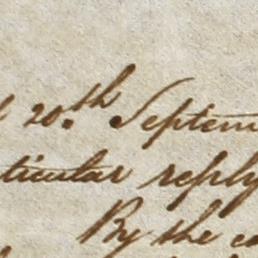 20.th Septem
ticular reply
By the